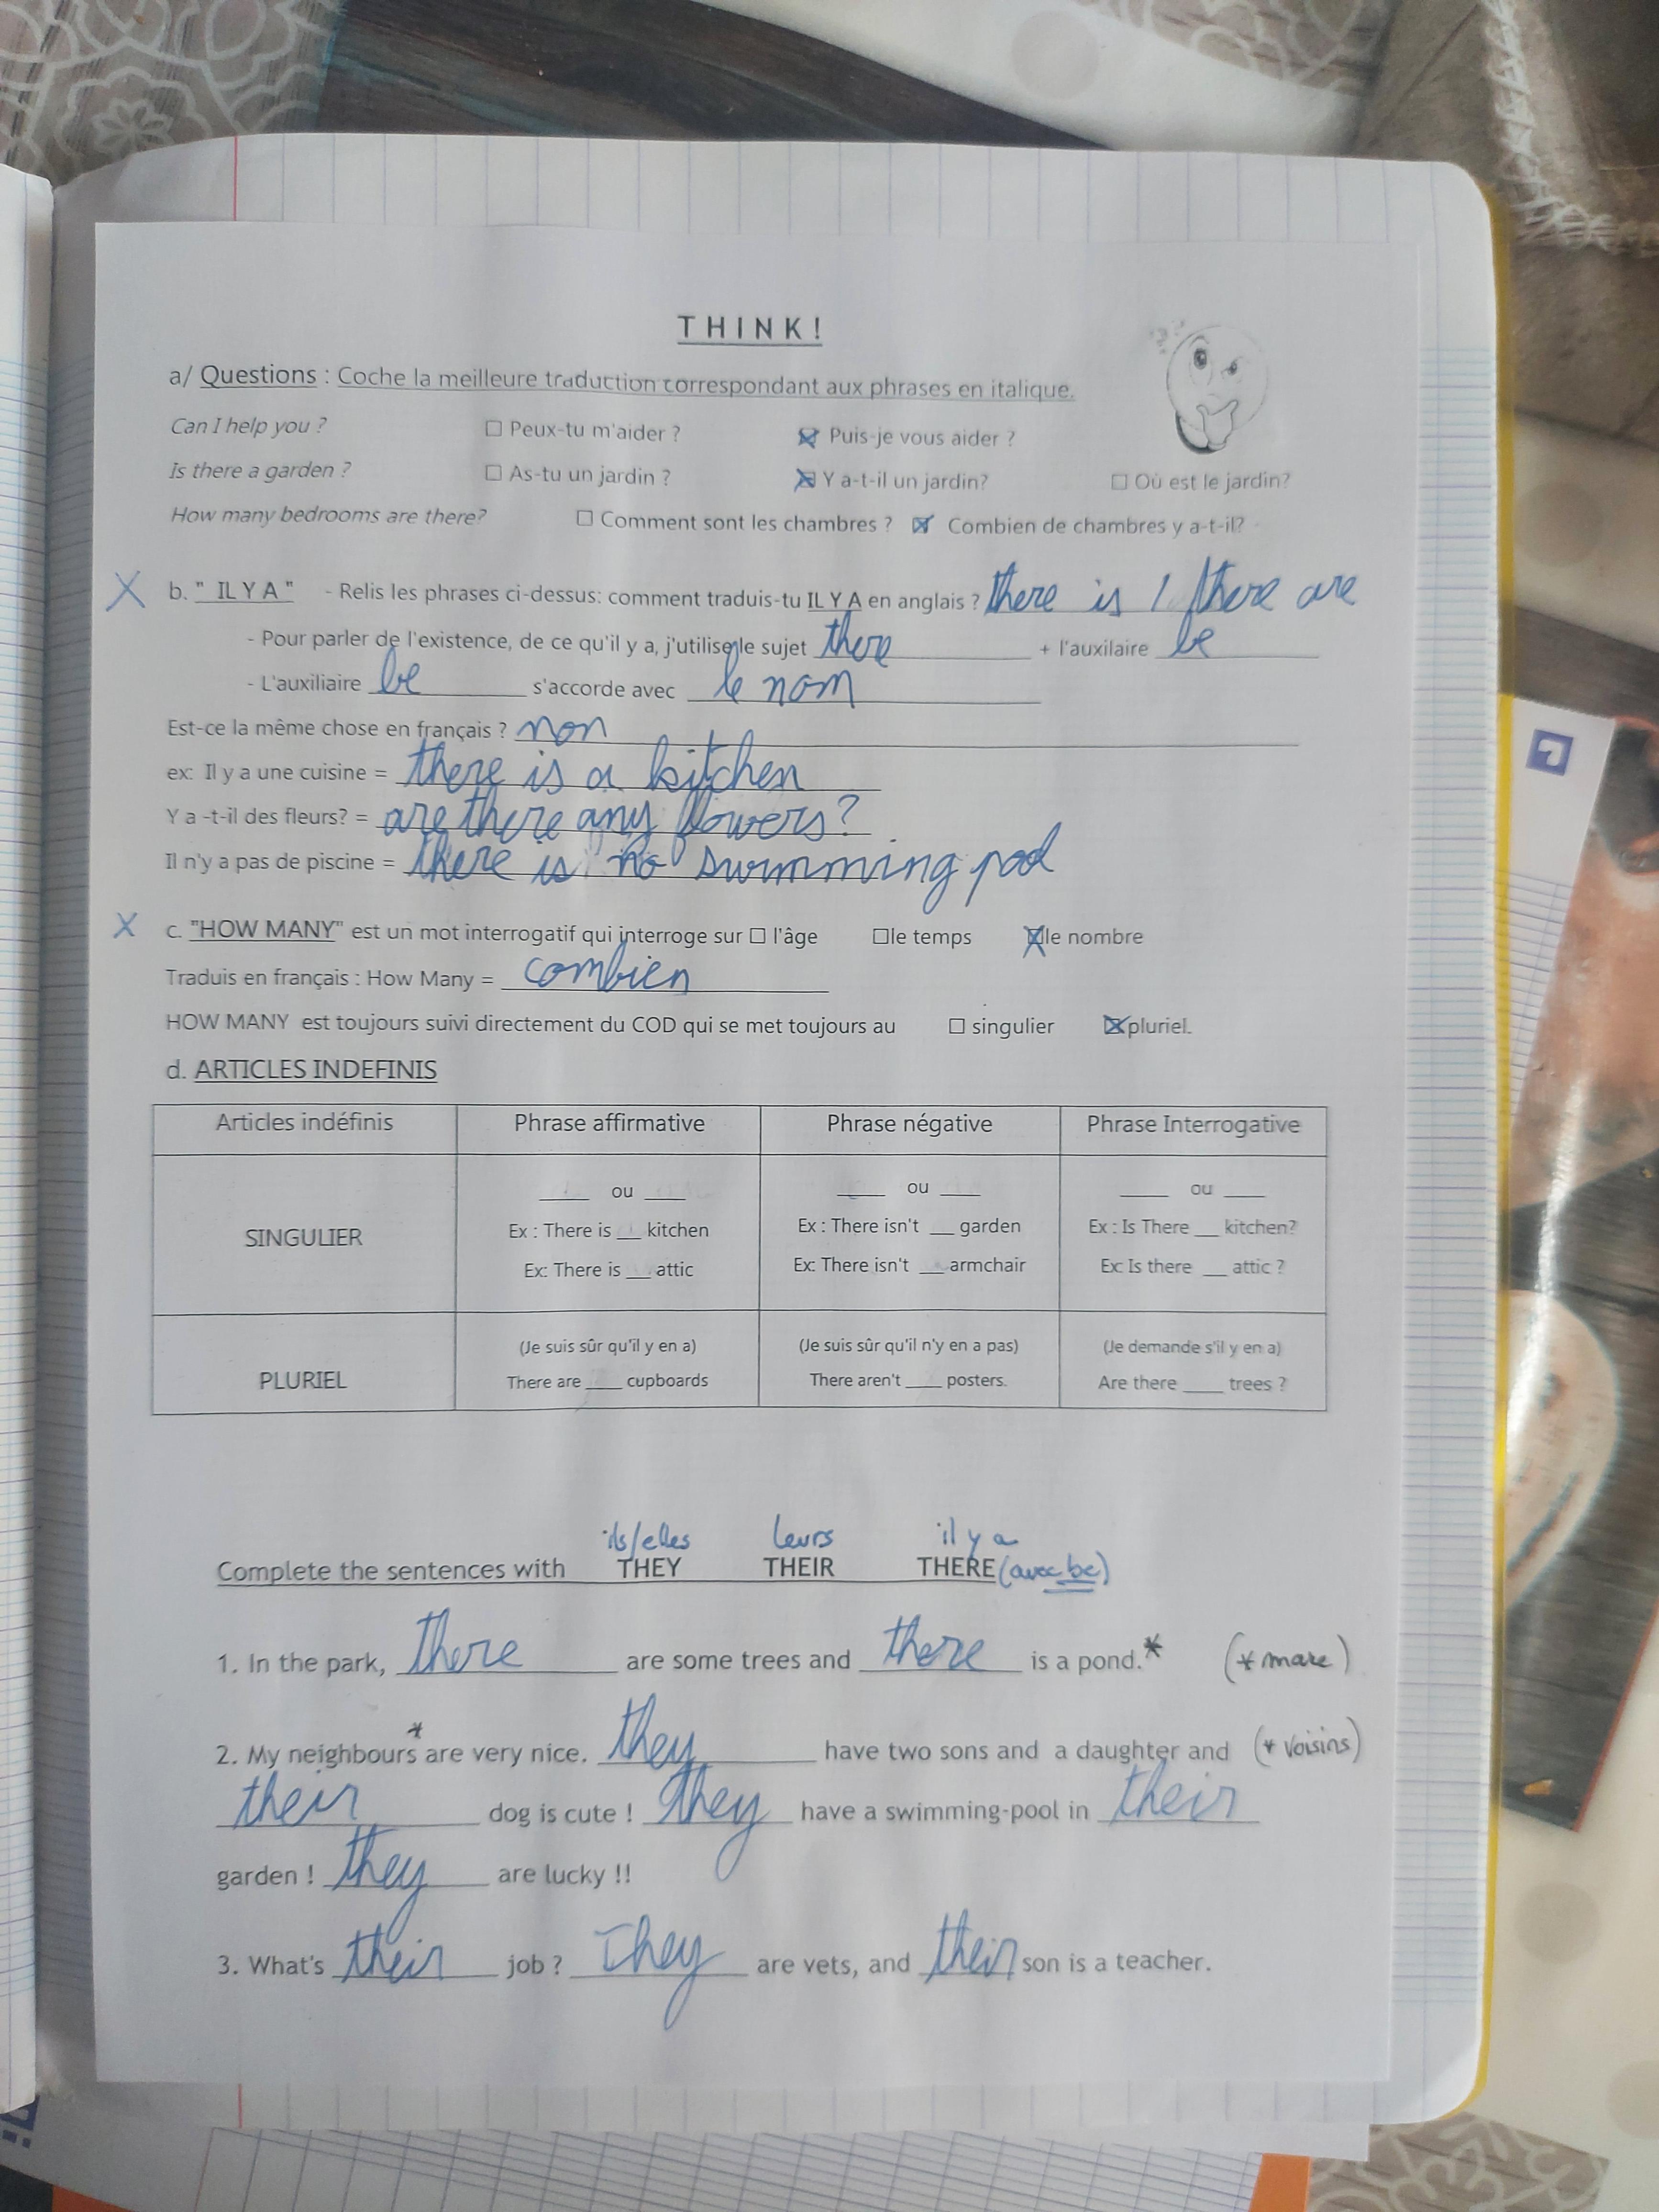 THINK!
a/ Questions : Coche la meilleure traduction correspondant aux phrases en italique.
Can I help you ? ☐ Peux-tu m'aider ? ☒ Puis-je vous aider ?
Is there a garden ? ☐ As-tu un jardin ? ☒ Y a-t-il un jardin? ☐ Où est le jardin?
How many bedrooms are there? ☐ Comment sont les chambres ? ☒ Combien de chambres y a-t-il?
X b. " IL Y A " - Relis les phrases ci-dessus: comment traduis-tu IL Y A en anglais ? there is / there are
- Pour parler de l'existence, de ce qu'il y a, j'utilise le sujet there + l'auxilaire be
- L'auxiliaire be s'accorde avec le nom
Est-ce la même chose en français ? non
ex: Il y a une cuisine = there is a kitchen
Y a -t-il des fleurs? = are there any flowers?
Il n'y a pas de piscine = there is no swimming pool
X c. "HOW MANY" est un mot interrogatif qui interroge sur ☐ l'âge ☐le temps ☒le nombre
Traduis en français : How Many = combien
HOW MANY est toujours suivi directement du COD qui se met toujours au ☐ singulier ☒pluriel.
d. ARTICLES INDEFINIS
Articles indéfinis Phrase affirmative Phrase négative Phrase Interrogative
____ ou ____ ____ ou ____ ____ ou ____
SINGULIER Ex : There is __ kitchen Ex : There isn't __ garden Ex : Is There __ kitchen?
Ex: There is __ attic Ex: There isn't __ armchair Ex: Is there __ attic ?
(Je suis sûr qu'il y en a) (Je suis sûr qu'il n'y en a pas) (Je demande s'il y en a)
PLURIEL There are ____ cupboards There aren't ____ posters. Are there ____ trees ?
ils/elles leurs il y a
Complete the sentences with THEY THEIR THERE (avec be)
1. In the park, there are some trees and there is a pond.* (* mare)
2. My neighbours* are very nice. they have two sons and a daughter and (* voisins)
their dog is cute ! They have a swimming-pool in their
garden ! they are lucky !!
3. What's their job ? They are vets, and their son is a teacher.